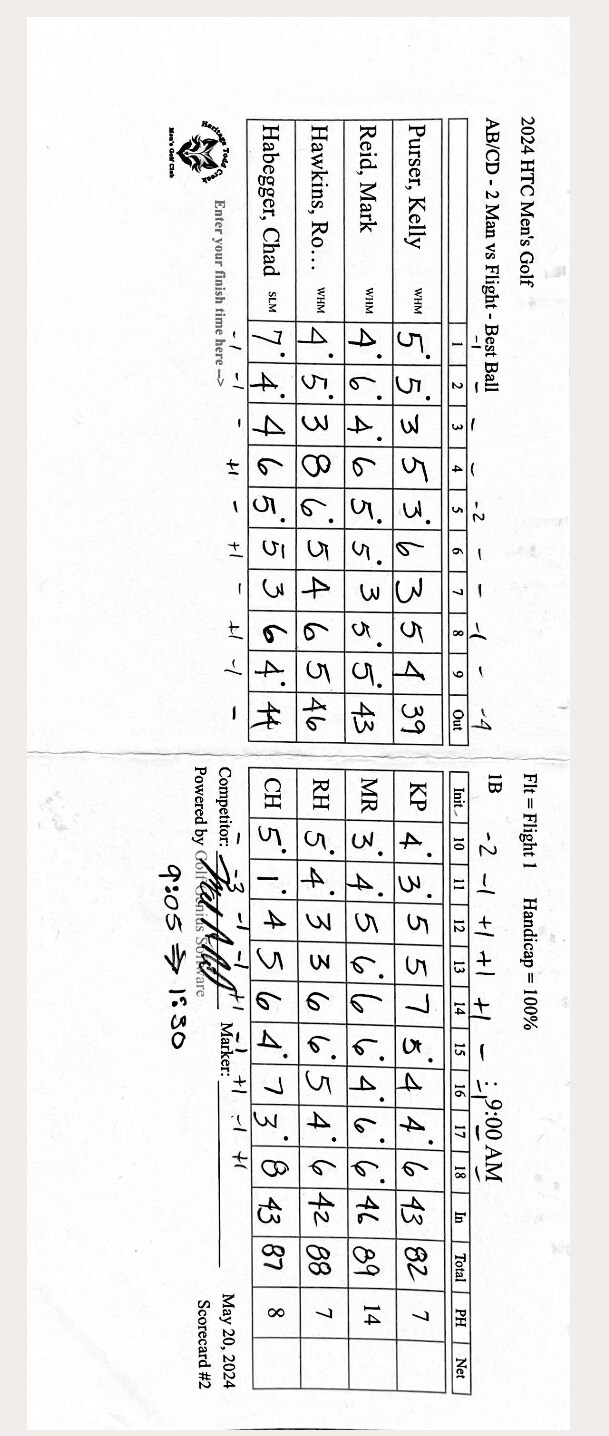 2024 HTC Men's Golf Flt = Flight 1 Handicap = 100%
AB/CD - 2 Man vs Flight - Best Ball 1B 9:00 AM
-1 - - - -2 - - -1 - -4 -2 -1 +1 +1 +1 -
1 2 3 4 5 6 7 8 9 Out Init 10 11 12 13 14 15 16 17 18 In Total PH Net
Purser, Kelly WHM 5 5 3 5 3 6 3 5 4 39 KP 4 3 5 5 7 5 4 4 6 43 82 7
Reid, Mark WHM 4 6 4 6 5 5 3 5 5 43 MR 3 4 5 6 6 6 4 6 6 46 89 14
Hawkins, Ro... WHM 4 5 3 8 6 5 4 6 5 46 RH 5 4 3 3 6 6 5 4 6 42 88 7
Habegger, Chad SLM 7 4 4 6 5 5 3 6 4 44 CH 5 1 4 5 6 4 7 3 8 43 87 8
-1 -1 - +1 - +1 - +1 -1 - - -3 -1 -1 +1 -1 +1 -1 +1
Heritage Todd Creek
Men's Golf Club
Enter your finish time here -->
Competitor: Marker: May 20, 2024
Powered by Golf Genius Software Scorecard #2
9:05 → 1:30